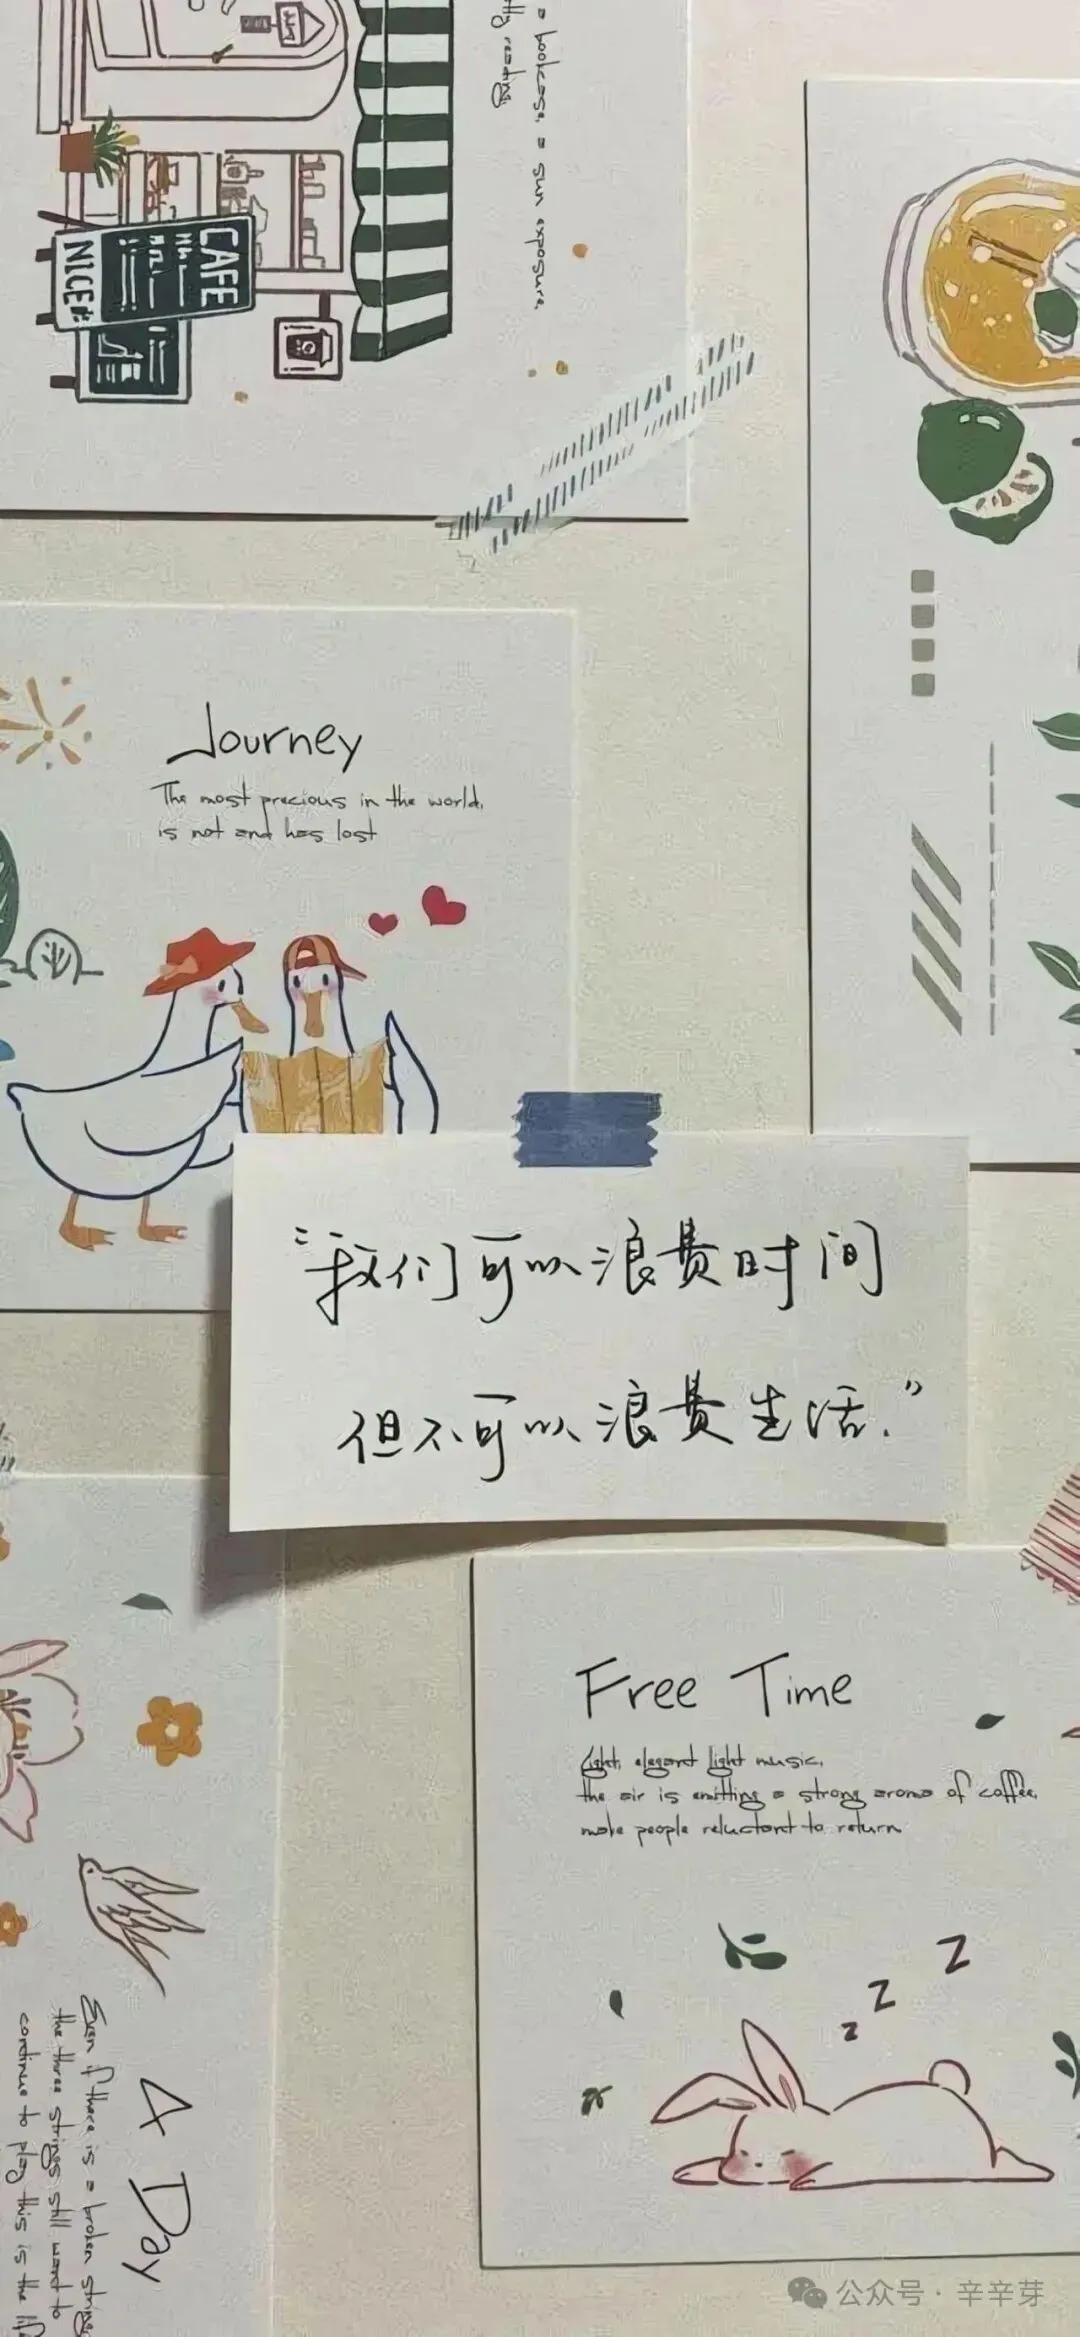 a bookcase, a sun exposure,
reading
CAFE
NICE
Journey
The most precious in the world,
is not and has lost
“我们可以浪费时间
但不可以浪费生活.”
Free Time
Light, elegant light music,
the air is emitting a strong aroma of coffee,
make people reluctant to return
z
z
z
A Day
Even if there is a broken string
the three strings still want to
continue to play this is the life
公众号 · 辛辛芽